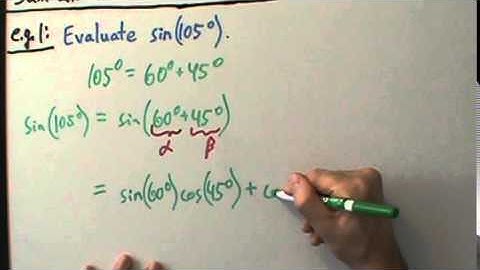 e.g. 1: Evaluate sin(105°).
105° = 60° + 45°
sin(105°) = sin(60° + 45°)
α β
= sin(60°)cos(45°) + co